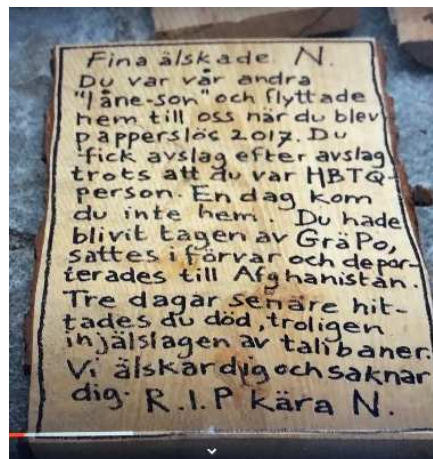 Fina älskade N.
Du var vår andra
"låne-son" och flyttade
hem till oss när du blev
papperslös 2017. Du
fick avslag efter avslag
trots att du var HBTQ-
person. En dag kom
du inte hem. Du hade
blivit tagen av GräPo,
sattes i förvar och depor-
terades till Afghanistan.
Tre dagar senare hit-
tades du död, troligen
injälslagen av talibaner.
Vi älskar dig och saknar
dig. R.I.P kära N.